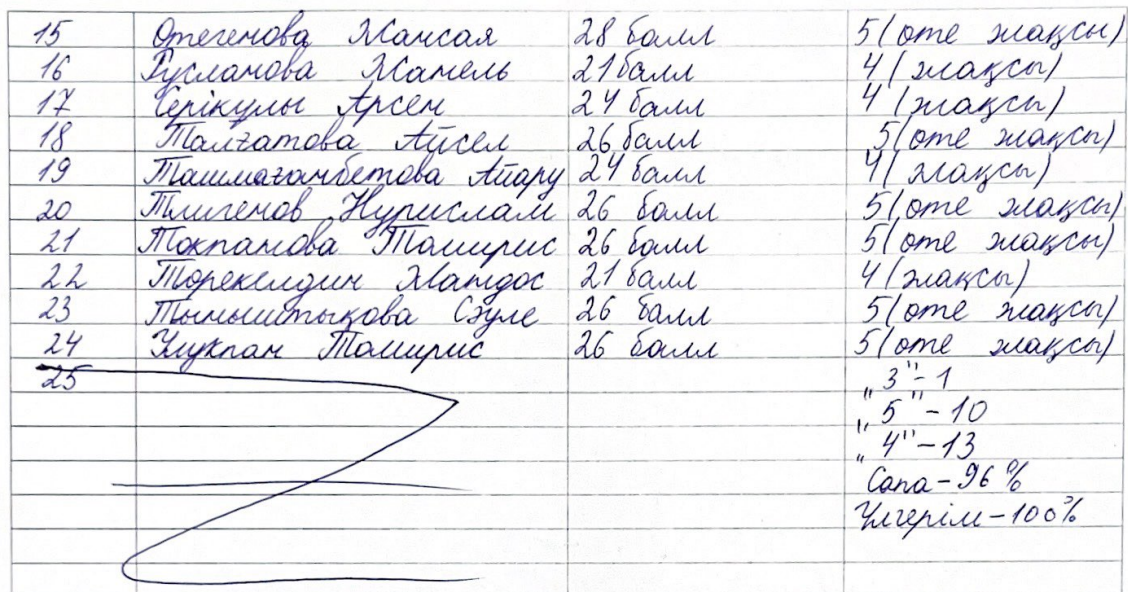 15 Отегенова Жансая 28 балл 5 (өте жақсы)
16 Русланова Жанель 21 балл 4 (жақсы)
17 Серікұлы Арсен 24 балл 4 (жақсы)
18 Талғатова Айсел 26 балл 5 (өте жақсы)
19 Ташмағамбетова Айару 24 балл 4 (жақсы)
20 Тлигенов Нурислам 26 балл 5 (өте жақсы)
21 Токпанова Томирис 26 балл 5 (өте жақсы)
22 Торекелдин Жандос 21 балл 4 (жақсы)
23 Тыныштықова Сәуле 26 балл 5 (өте жақсы)
24 Улукпан Томирис 26 балл 5 (өте жақсы)
25 „3" - 1
„5" - 10
„4" - 13
Сапа - 96 %
Үлгерім - 100%